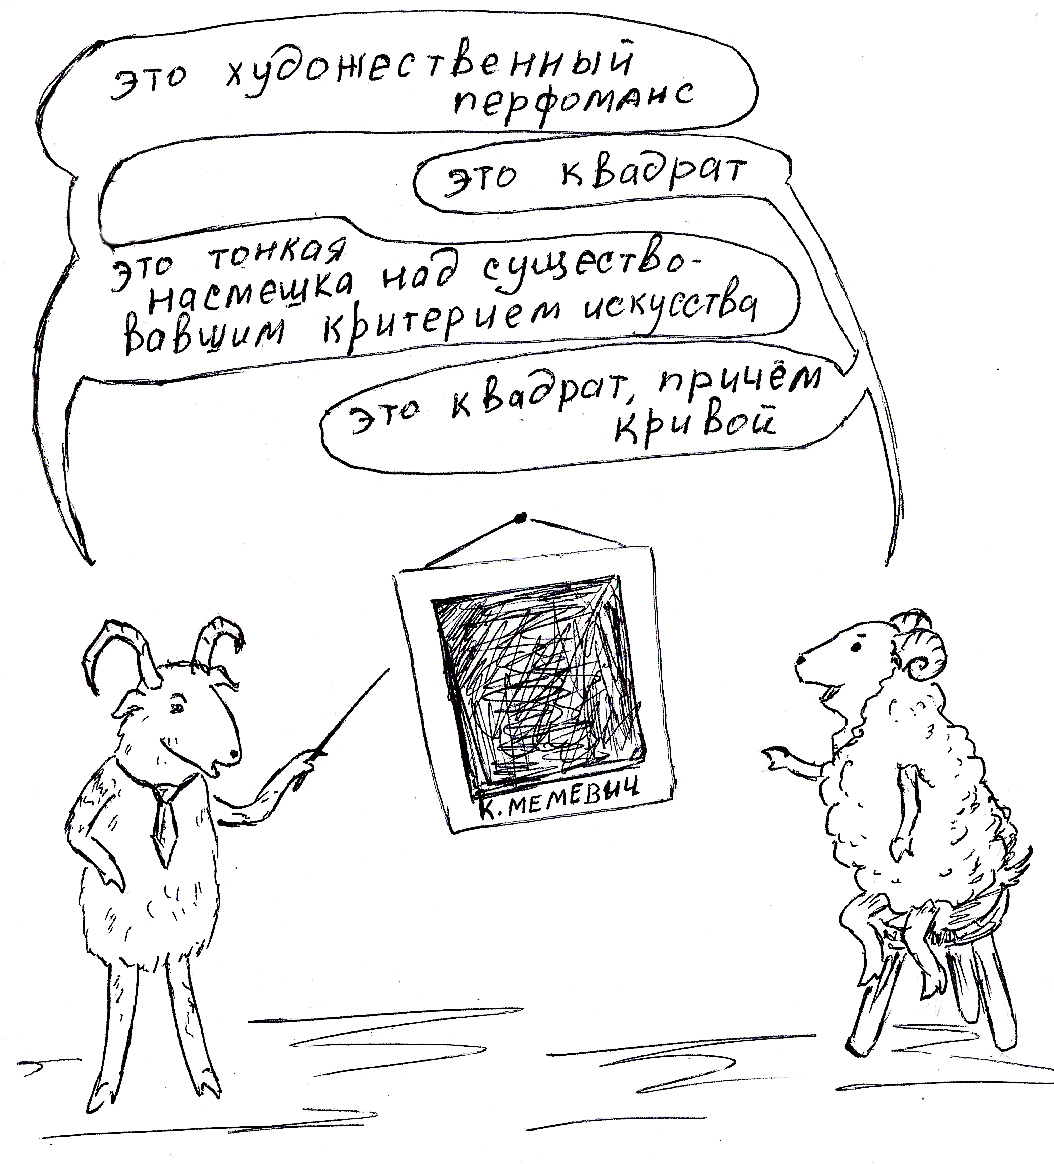 это художественный
перфоманс
это квадрат
это тонкая
насмешка над существо-
вавшим критерием искусства
это квадрат, причём
кривой
К. МЕМЕВИЧ